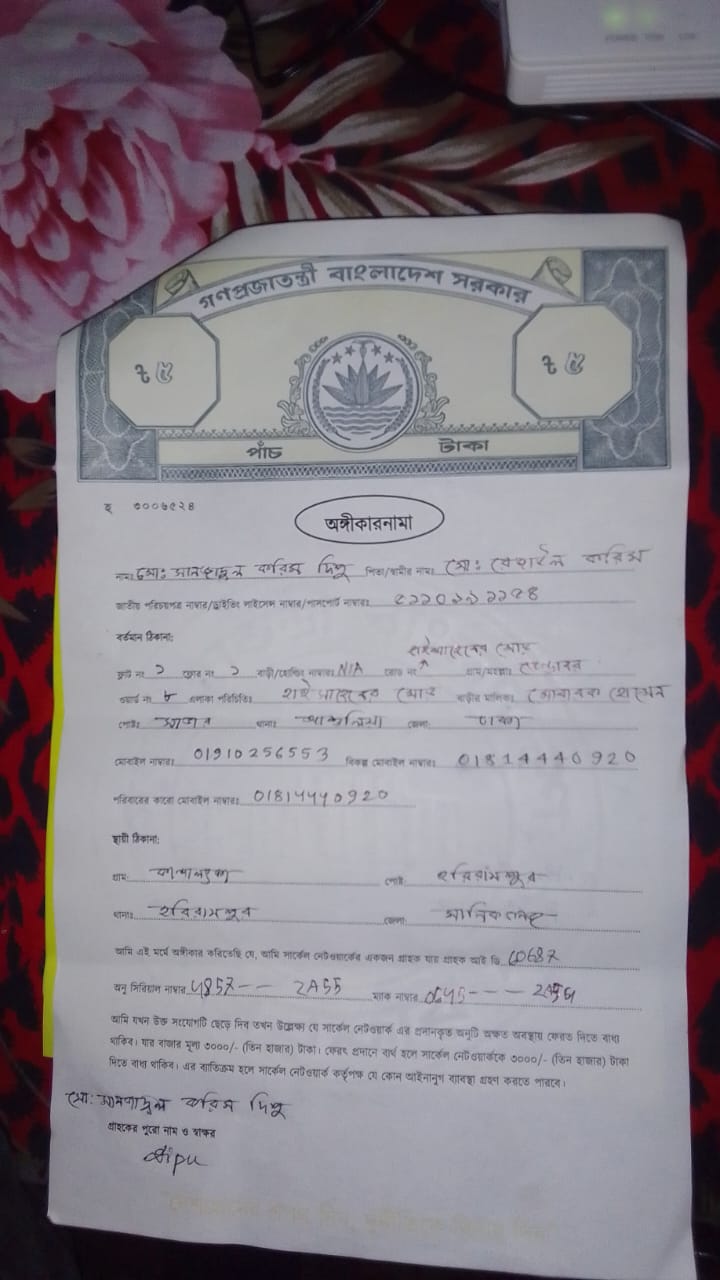 গণপ্রজাতন্ত্রী বাংলাদেশ সরকার
৳ ৫ ৳ ৫
পাঁচ টাকা
হ ৩০০৬৫২৪
অঙ্গীকারনামা
নামঃ মোঃ করিম দিপু পিতা/স্বামীর নামঃ মোঃ করিম
জাতীয় পরিচয়পত্র নাম্বার/ড্রাইভিং লাইসেন্স নাম্বার/পাসপোর্ট নাম্বারঃ
বর্তমান ঠিকানা:
ফ্লাট নং ১ ফ্লোর নং ১ বাড়ী/হোল্ডিং নাম্বারঃ N/A রোড নং গ্রাম/মহল্লাঃ
ওয়ার্ড নং ৮ এলাকা পরিচিতিঃ বাড়ীর মালিকঃ মোবারক হোসেন
পোষ্টঃ সাভার থানাঃ আশুলিয়া জেলাঃ ঢাকা
মোবাইল নাম্বারঃ 01910256553 বিকল্প মোবাইল নাম্বারঃ 01814440920
পরিবারের কারো মোবাইল নাম্বারঃ 01814440920
স্থায়ী ঠিকানা:
গ্রাম: পোষ্ট: হরিরামপুর
থানাঃ হরিরামপুর জেলাঃ মানিকগঞ্জ
আমি এই মর্মে অঙ্গীকার করিতেছি যে, আমি সার্কেল নেটওয়ার্কের একজন গ্রাহক যার গ্রাহক আই ডি
অনু সিরিয়াল নাম্বার 4857-- 2A55 ম্যাক নাম্বার
আমি যখন উক্ত সংযোগটি ছেড়ে দিব তখন উল্লেক্ষ্য যে সার্কেল নেটওয়ার্ক এর প্রদানকৃত অনুটি অক্ষত অবস্থায় ফেরত দিতে বাধ্য
থাকিব। যার বাজার মূল্য ৩০০০/- (তিন হাজার) টাকা। ফেরৎ প্রদানে ব্যর্থ হলে সার্কেল নেটওয়ার্ককে ৩০০০/- (তিন হাজার) টাকা
দিতে বাধ্য থাকিব। এর ব্যতিক্রম হলে সার্কেল নেটওয়ার্ক কর্তৃপক্ষ যে কোন আইনানুগ ব্যাবস্থা গ্রহণ করতে পারবে।
মোঃ করিম দিপু
গ্রাহকের পুরো নাম ও স্বাক্ষর
Dipu